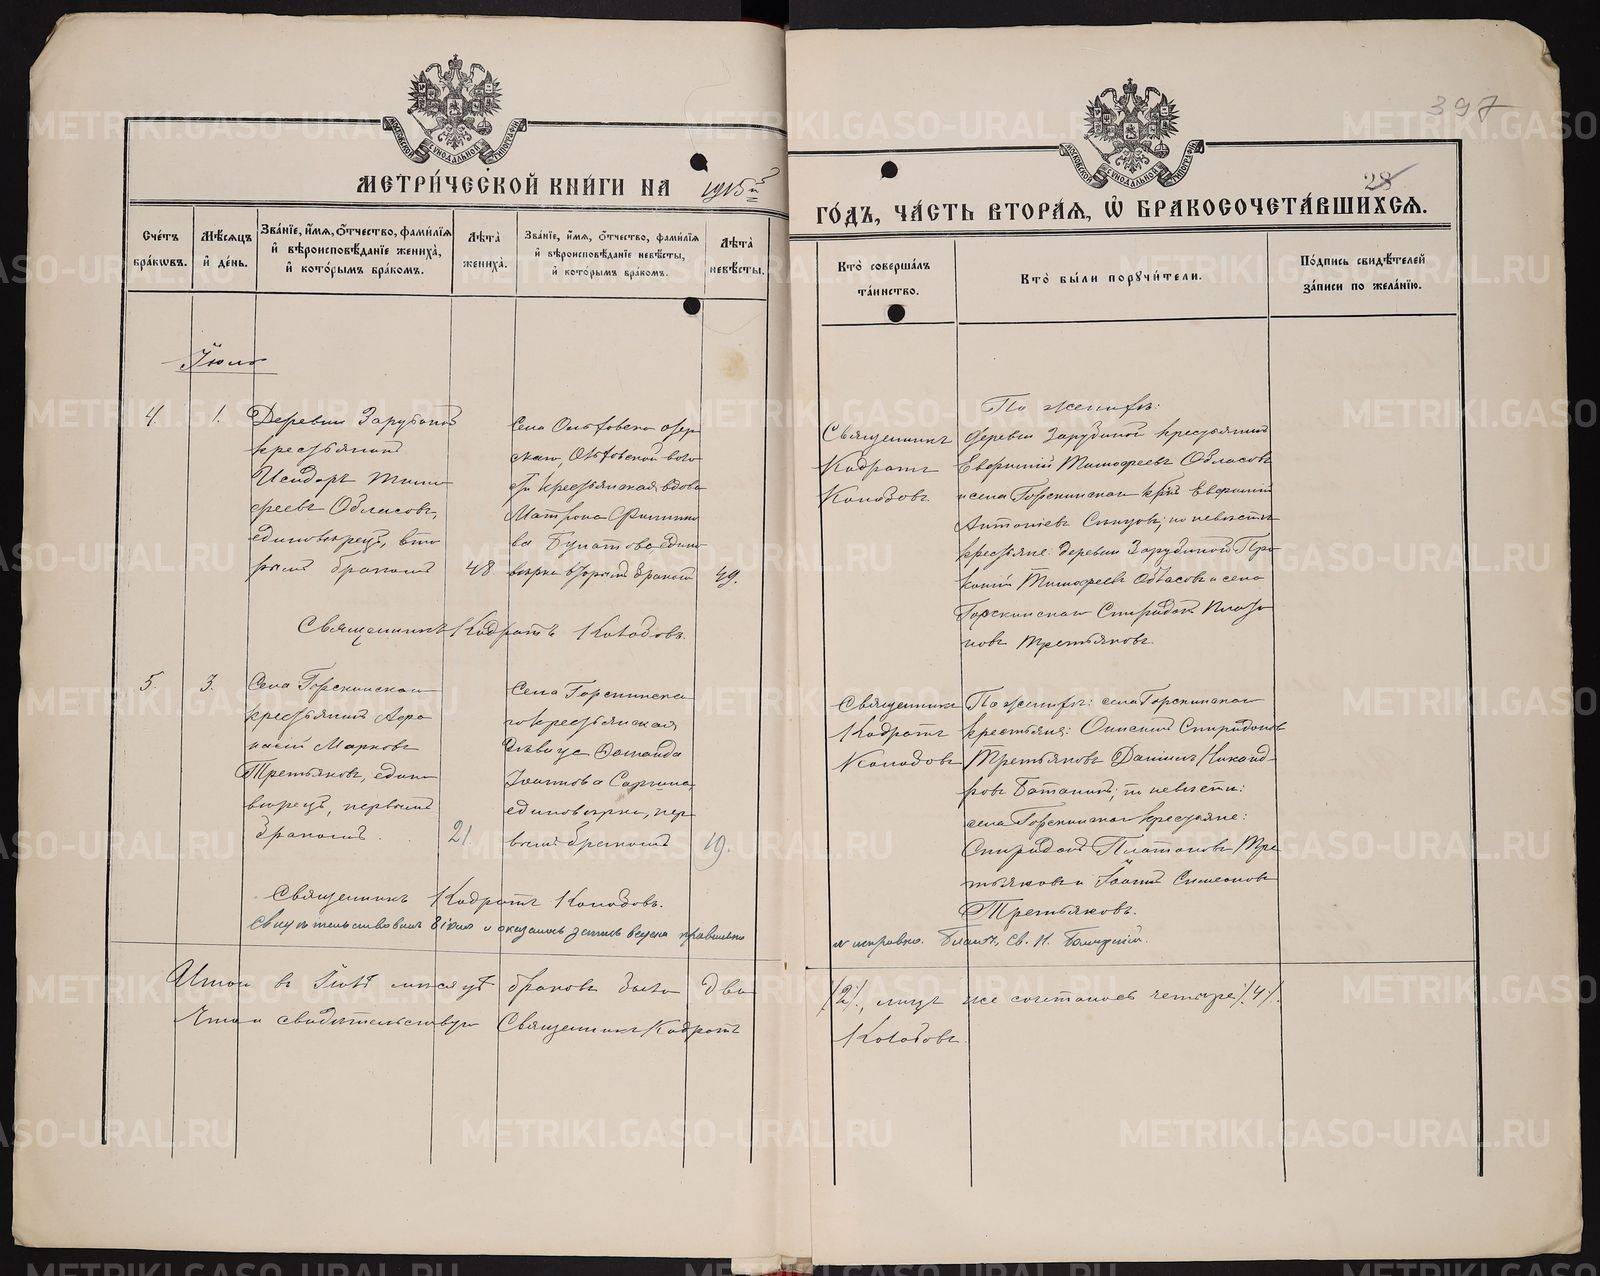 397
28
МЕТРИ́ЧЕСКОЙ КНИ́ГИ НА 1915й
ГО́ДЪ, ЧА́СТЬ ВТОРА́Я, Ѽ БРАКОСОЧЕТА́ВШИХСЯ.
Сче́тъ бра́кѡвъ.
Мѣ́сяцъ и҆ де́нь.
Зва́нїе, и҆́мя, ѻ҆́тчество, фами́лїя и҆ вѣроисповѣ́данїе жениха̀, и҆ кото́рымъ бра́комъ.
Лѣ́та жениха̀.
Зва́нїе, и҆́мя, ѻ҆́тчество, фами́лїя и҆ вѣроисповѣ́данїе невѣ́сты, и҆ кото́рымъ бра́комъ.
Лѣ́та невѣ́сты.
Кто̀ соверша́лъ та́инство.
Кто̀ бы́ли порꙋчи́тели.
По́дпись свидѣ́телей за́писи по жела́нїю.
Іюль
4.
1.
Деревни Зарубиной
крестьянинъ
Исидоръ Тимо
феевъ Обласовъ,
единоверецъ, вто
рымъ бракомъ
48
Села
Ольховской воло
сти крестьянская вдова
Матрона Филиппо
ва Булатова, едино
верка вторымъ бракомъ
49.
Священникъ
Кодратъ
Колобовъ.
По женихѣ:
деревни Зарубиной крестьянинъ
Евфимій Тимофеевъ Обласовъ
и села Горскинскаго крнъ Евфимій
Антоніевъ по невѣстѣ
крестьяне: деревни Зарубиной Про
копій Тимофеевъ Обласовъ и села
Горскинскаго Спиридонъ Плато
новъ Третьяковъ.
Священникъ Кодратъ Колобовъ.
5.
3.
Села Горскинскаго
крестьянинъ Афа
насій Марковъ
Третьяковъ, едино
верецъ, первымъ
бракомъ.
21
Села Горскинска
го крестьянская
девица Домнида
Іоаннова
единоверка, пер
вымъ бракомъ
19.
Священникъ
Кодратъ
Колобовъ
По женихѣ: села Горскинскаго
крестьяне: Спиридоновъ
Третьяковъ Даніилъ Никанд-
ровъ по невѣсте:
села Горскинскаго крестьяне:
Спиридонъ Платоновъ Тре
тьяковъ и Іоаннъ Симеоновъ
Третьяковъ.
Священникъ Кодратъ Колобовъ.
Свидетельствовалъ 8 іюля и оказалось запись ведена правильно
и исправно. Благоч. Св. Н.
Итого въ Іюлѣ месяцѣ браковъ было два
/2/, лицъ же сочеталось четыре /4/.
Что и свидетельствую Священникъ Кодратъ
Колобовъ.
METRIKI.GASO-URAL.RU